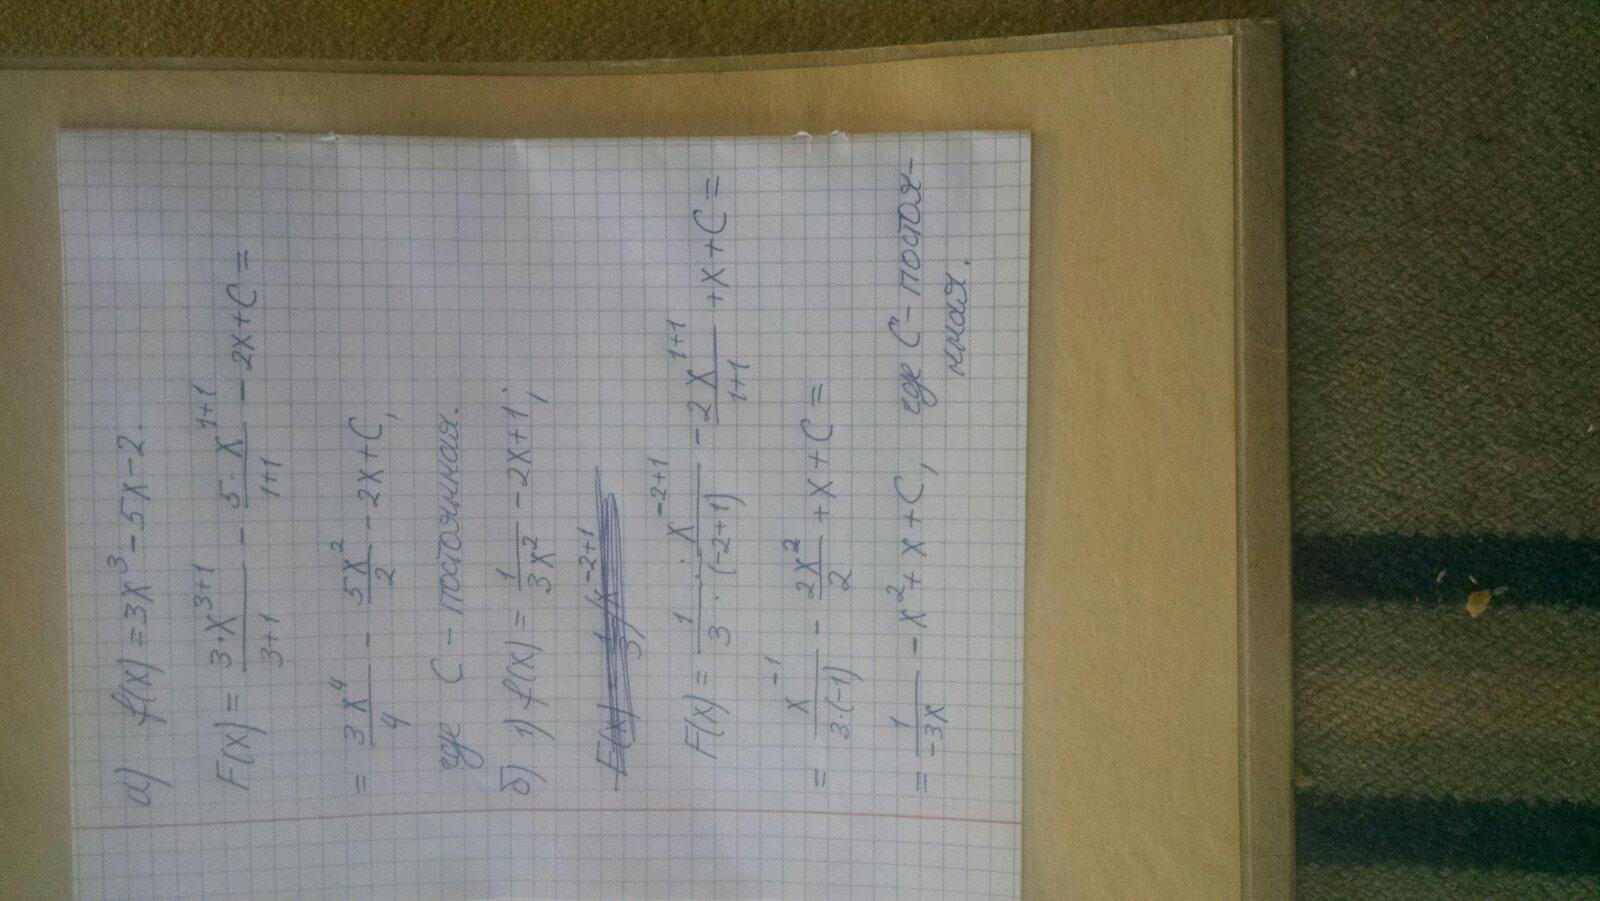 а) f(x) = 3x³ - 5x - 2.
F(x) = 3·x³⁺¹/3+1 - 5·x¹⁺¹/1+1 - 2x + C =
= 3x⁴/4 - 5x²/2 - 2x + C,
где C - постоянная.
б) 1) f(x) = 1/3x² - 2x + 1;
F(x) = 1/3 · x⁻²⁺¹/(-2+1) - 2x¹⁺¹/1+1 + x + C =
= x⁻¹/3·(-1) - 2x²/2 + x + C =
= 1/-3x - x² + x + C, где C - постоя-
нная.